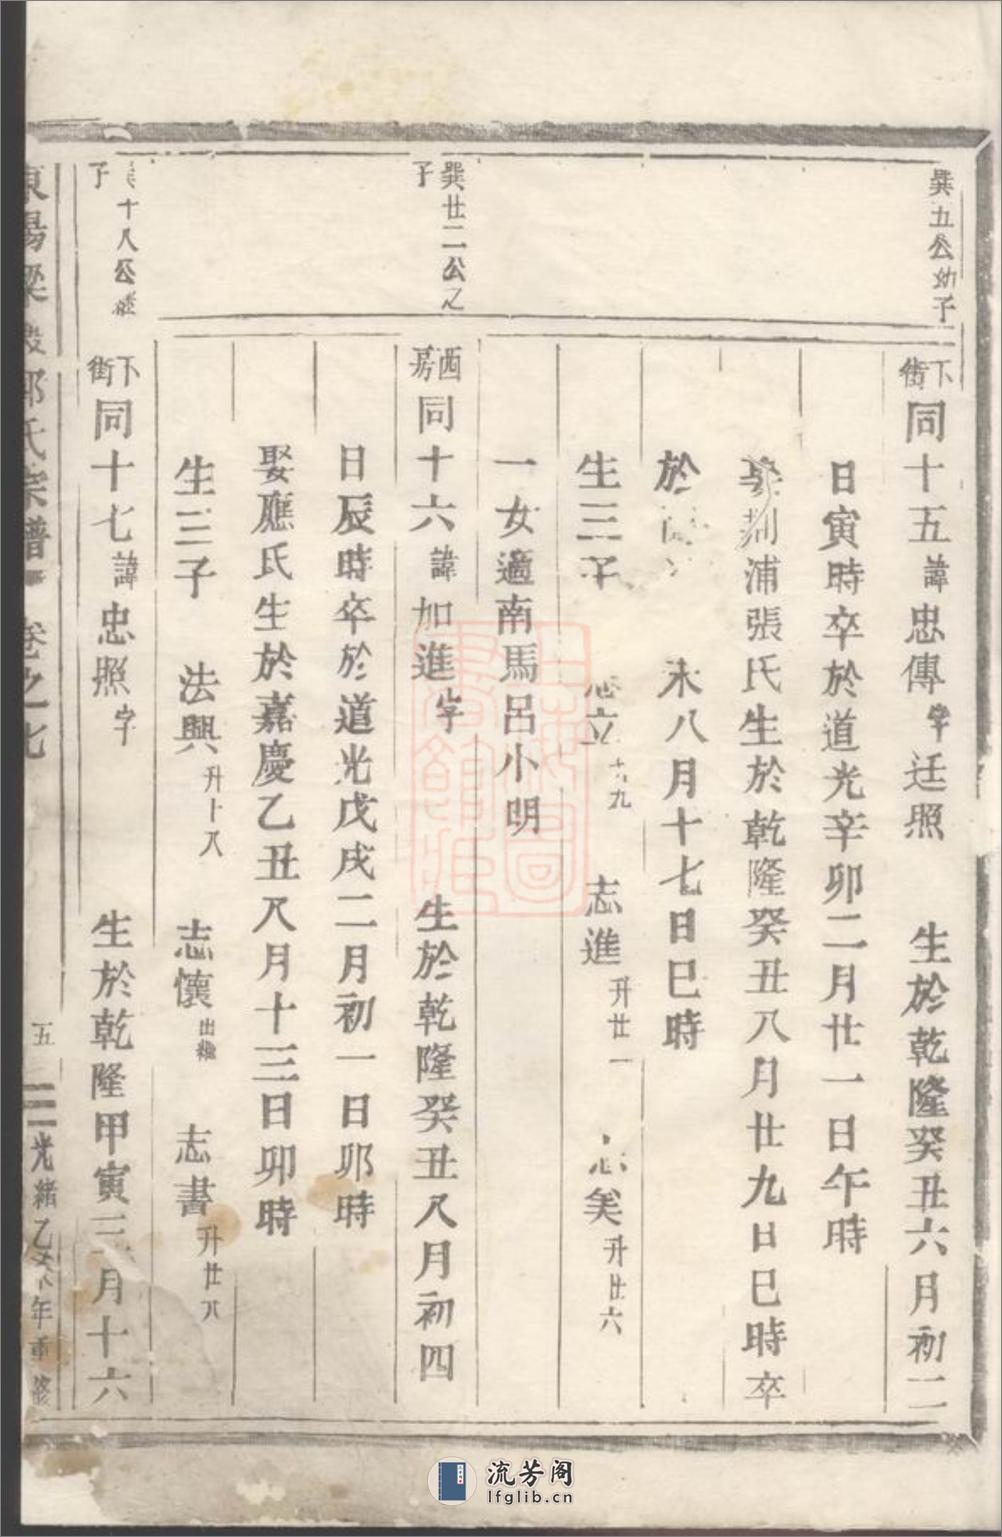 巽五公幼子
下街同十五諱忠傳字廷照 生於乾隆癸丑六月初二
日寅時卒於道光辛卯二月廿一日午時
娶荆浦張氏生於乾隆癸丑八月廿九日巳時卒
於 未八月十七日巳時
生三子 立十九 志進升廿一 志美升廿六
一女適南馬呂小明
巽廿二公之子
西房同十六諱加進字 生於乾隆癸丑八月初四
日辰時卒於道光戊戌二月初一日卯時
娶應氏生於嘉慶乙丑八月十三日卯時
生三子 法興升十八 志懷出繼 志書升廿八
十八公 子
下街同十七諱忠照字 生於乾隆甲寅三月十六
東陽梁 郭氏宗譜 卷之七 五 光緒乙 年重修
流芳阁
lfglib.cn